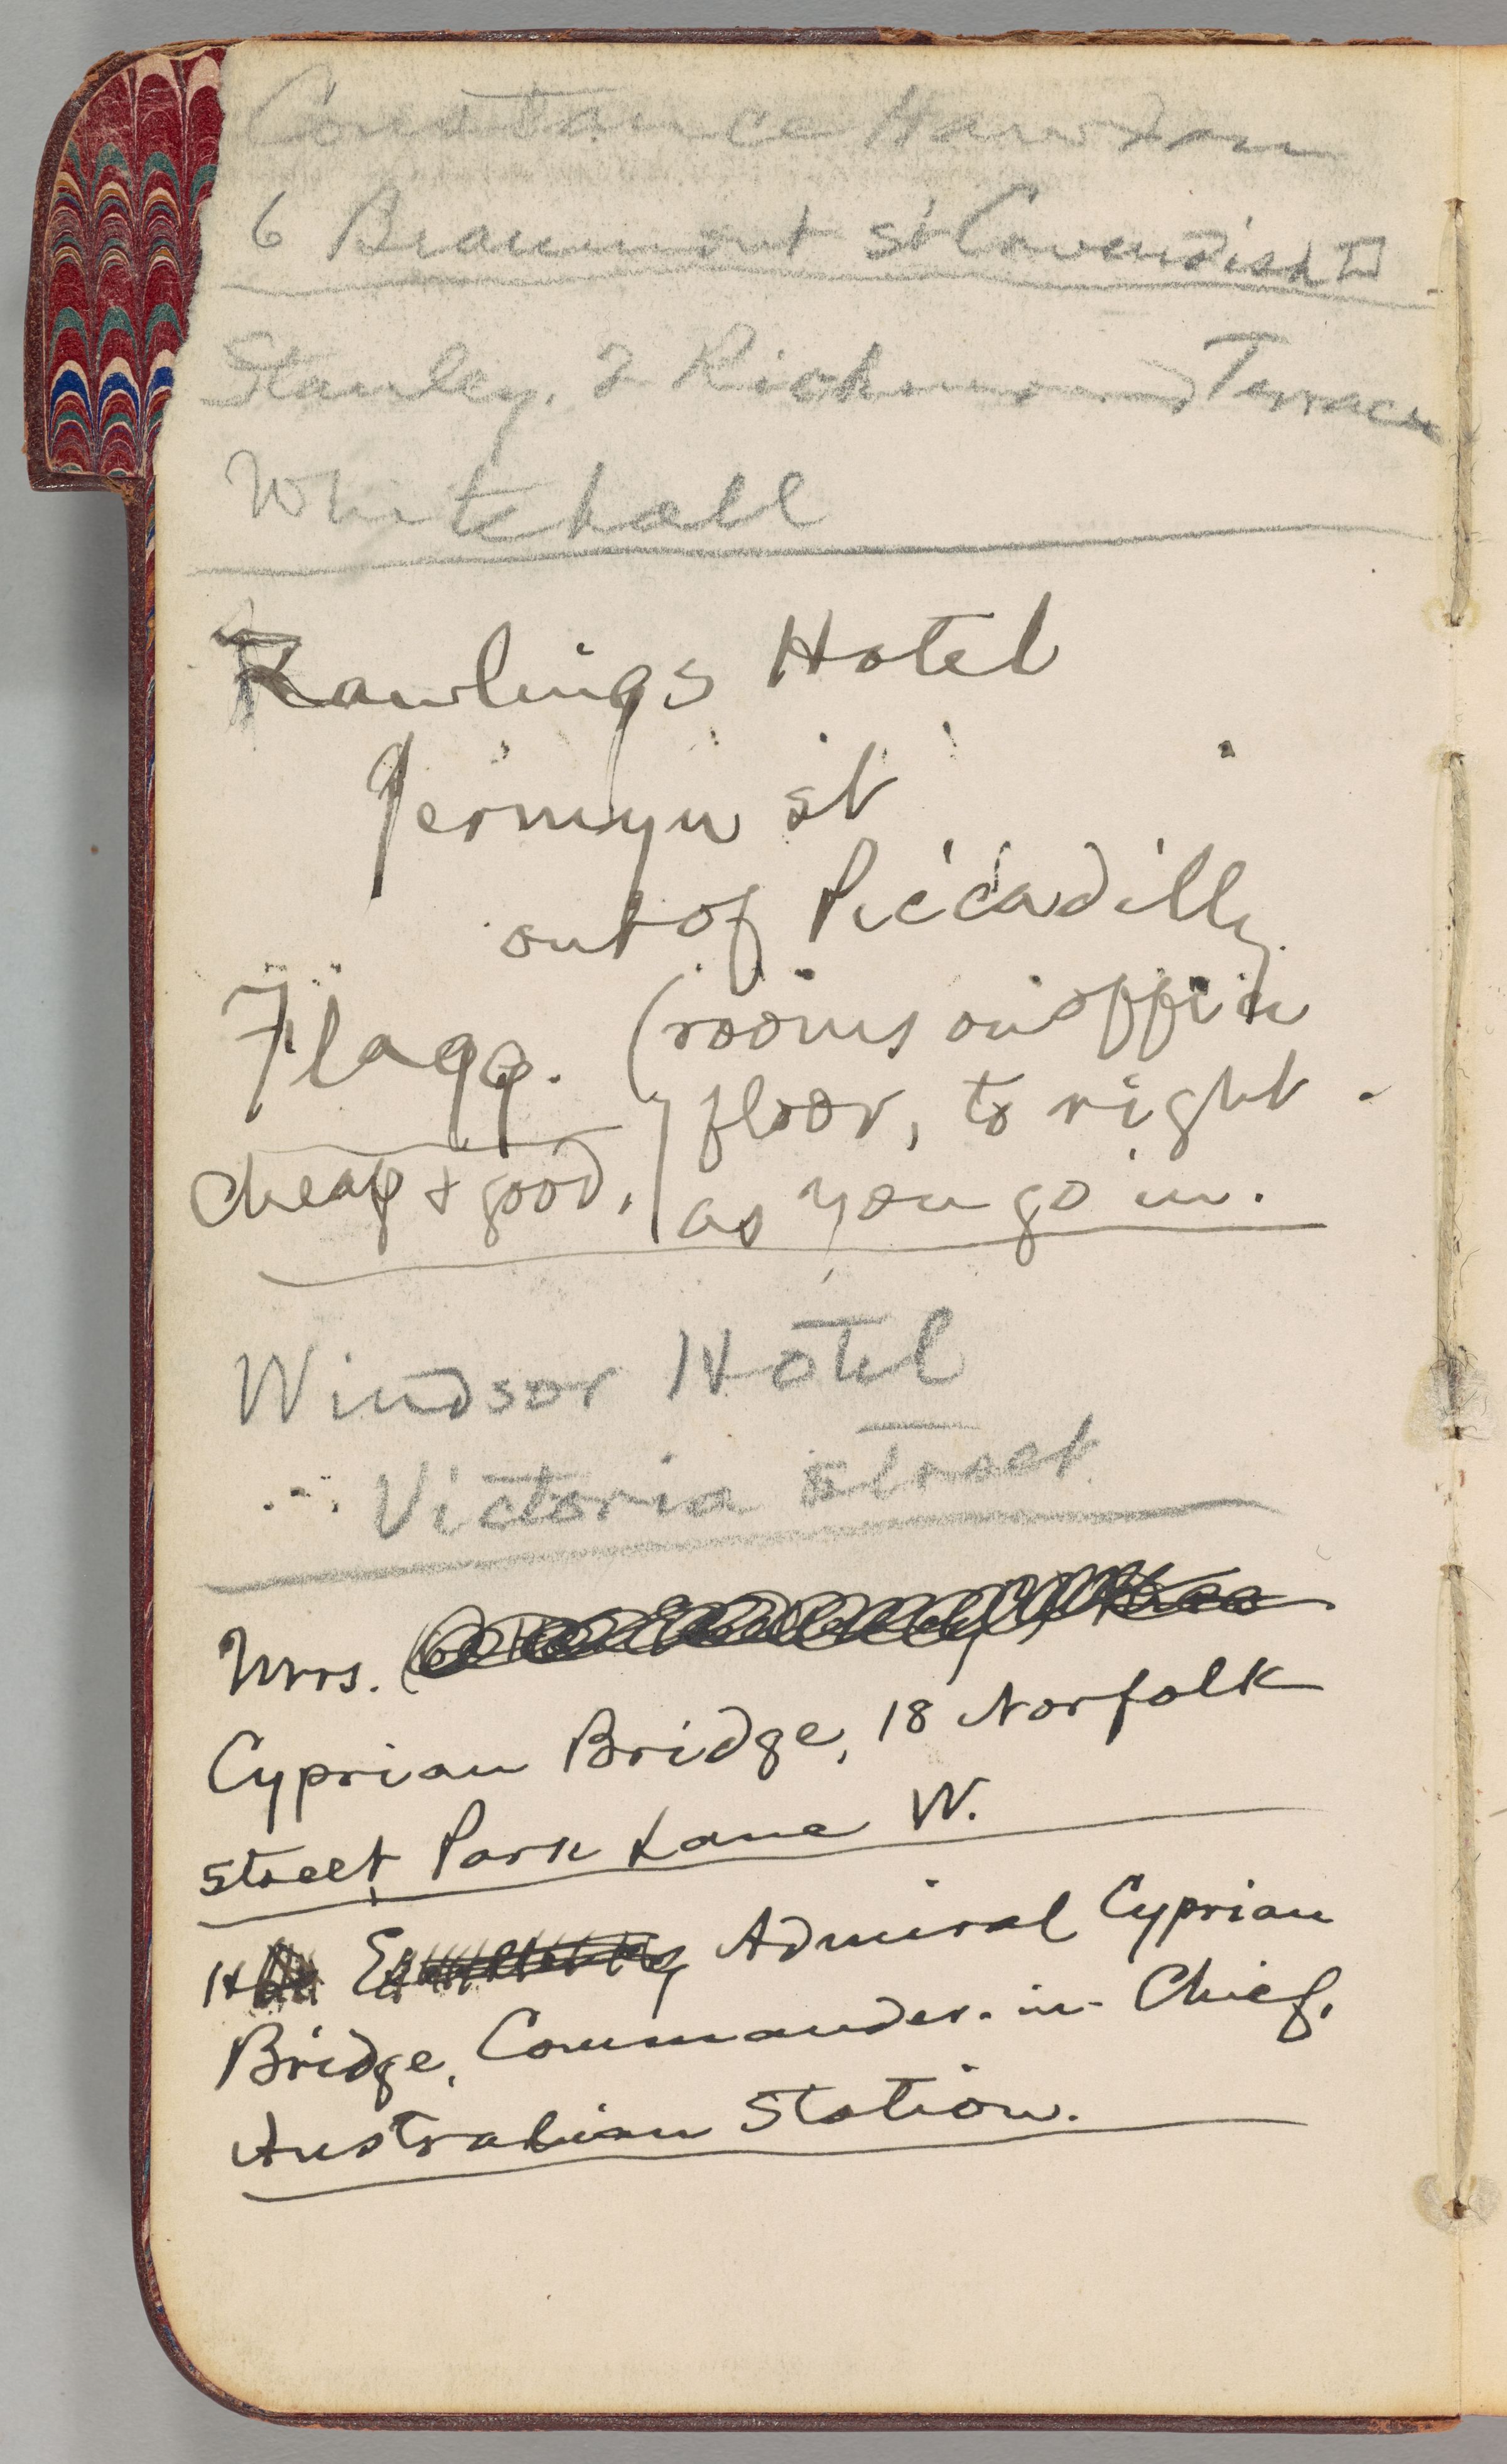 Constance
6 Beaumont st Cavendish □
Stanley, 2 Richmond Terrace
Whitehall
Rawlings Hotel
Jermyn st
out of Piccadilly
Flagg. (rooms on office
floor, to right
cheap & good. as you go in.
Windsor Hotel
Victoria Street
Mrs.
Cyprian Bridge, 18 Norfolk
Street, Park Lane W.
Admiral Cyprian
Bridge, Commander-in-Chief,
Australian Station.